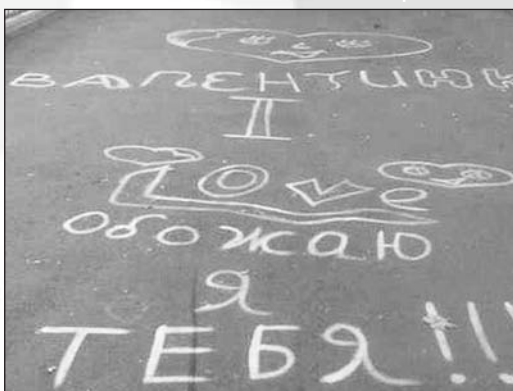 ВАЛЕНТИНК
I
Love
обожаю
я
ТЕБЯ!!!